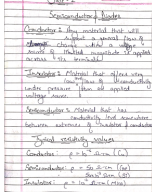 Unit - 1
Semiconductor Diodes
Conductor :- Any material that will
support a flow of
charge when a voltage
source of limited magnitude is applied
across its terminals
Insulator :- Material that offers very
low level of conductivity
under pressure from an applied
voltage source.
Semiconductor :- Material that has
conductivity level somewhere
between extremes of Insulator & conductor
Typical resistivity values
Conductor: ρ = 10⁻⁶ Ω-cm (Cu)
Semiconductor: ρ = 50 Ω-cm (Ge)
ρ = 50 × 10³ Ω-cm (Si)
Insulator: ρ = 10¹² Ω-cm (Mica)